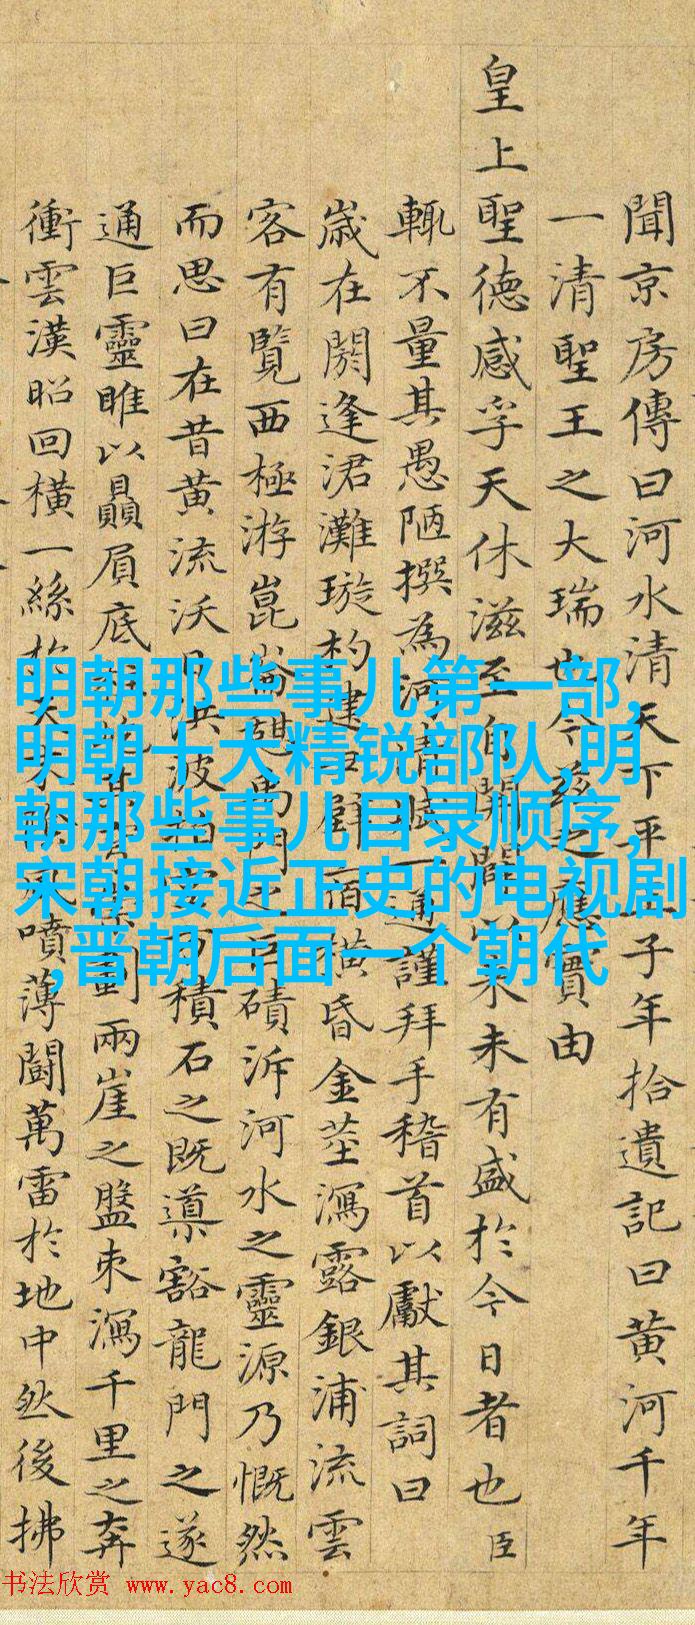 聞京房傳曰河水清天下平子年拾遺記曰黃河千年
一清聖王之大瑞也今茲之應實由
皇上聖德感孚天休滋至自開闢以來未有盛於今日者也臣
輒不量其愚陋撰為河清賦一通謹拜手稽首以獻其詞曰
歲在閼逢涒灘璇杓建申宿橫昏金莖瀉露銀浦流雲
客有覽西極游崑崙禹門之巨磧泝河水之靈源乃慨然
而思曰在昔黃流沃日洪波積石之既導豁龍門之遂
通巨靈雎以贔屓底劃兩崖之盤束瀉千里之奔
衝雲漢昭回橫一絲於天風噴薄鬭萬雷於地中然後拂
明朝那些事儿第一部,
明朝十大精锐部队,明
朝那些事儿目录顺序,
宋朝接近正史的电视剧
,晋朝后面一个朝代
书法欣赏 www.yac8.com